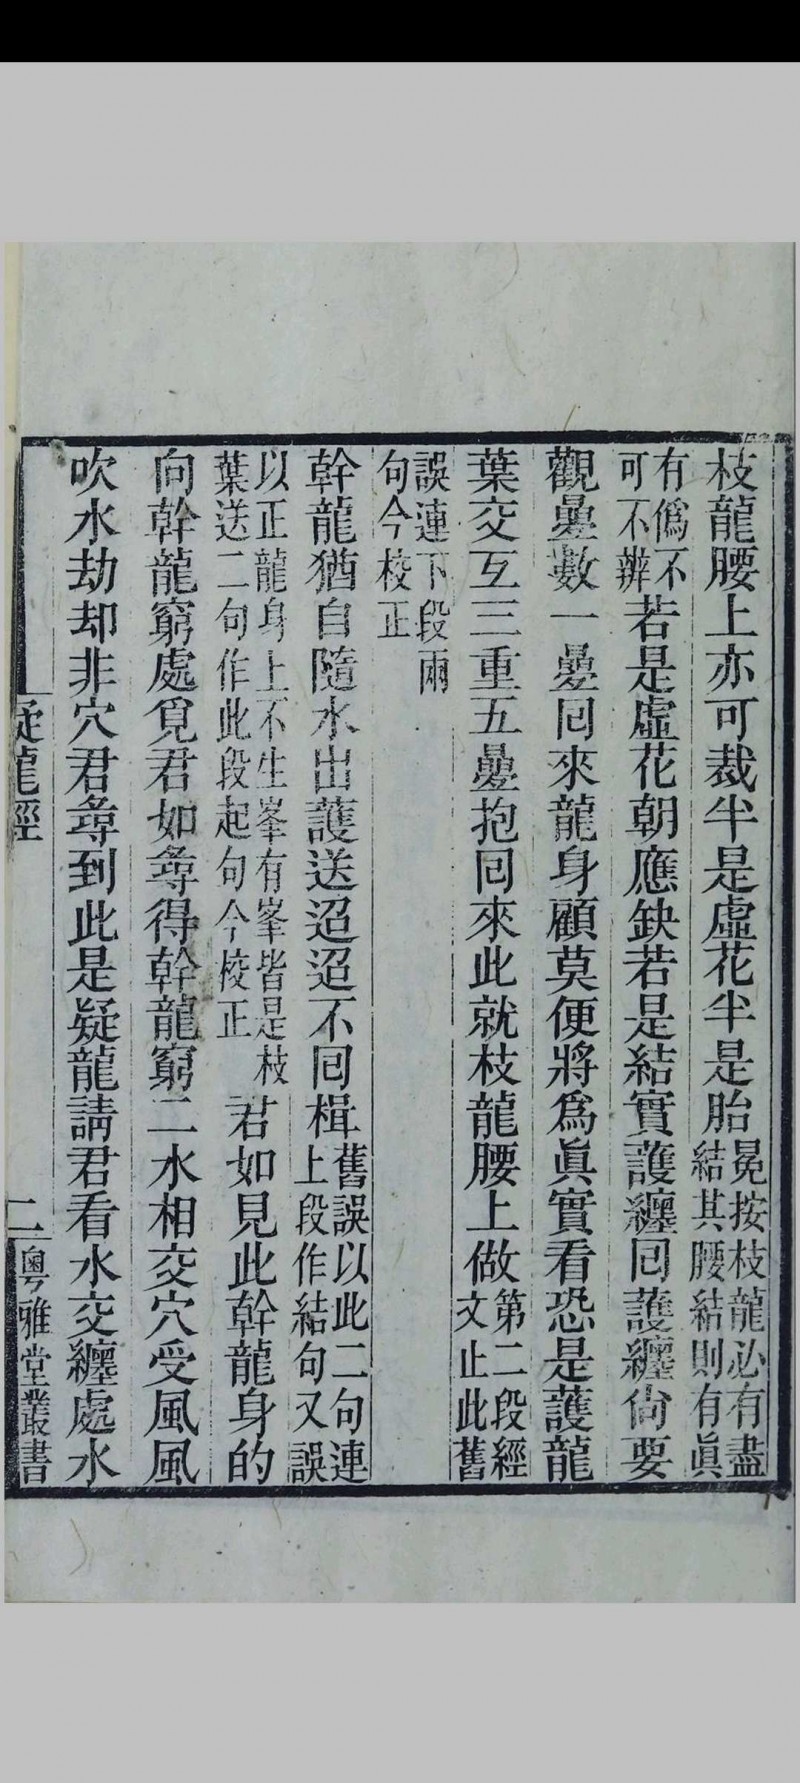 枝龍腰上亦可裁半是虛花半是胎冕按枝龍必有盡結其腰結則有眞
有僞不可不辨若是虛花朝應缺若是結實護纏回護纏尙要
觀疊數一疊回來龍身顧莫便將爲眞實看恐是護龍
葉交互三重五疊抱回來此就枝龍腰上做第二段經文止此舊
誤連下段兩句今校正
幹龍猶自隨水出護送迢迢不回楫舊誤以此二句連上段作結句又誤
以正龍身上不生峯有峯皆是枝葉送二句作此段起句今校正君如見此幹龍身的
向幹龍窮處覓君如尋得幹龍窮二水相交穴受風風
吹水劫却非穴君尋到此是疑龍請君看水交纏處水
疑龍經
二
粵雅堂叢書